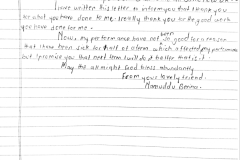 I have written this letter to inform you that thank you
for what you have done to me. I really thank you for the good work
you have done for me.
Now, my performance have not been so good for a reason
that I have been sick for half of a term which affected my performance
but I promise you that next term I will do it better than it is.
May the all might God bless abundantly
From your lovely friend.